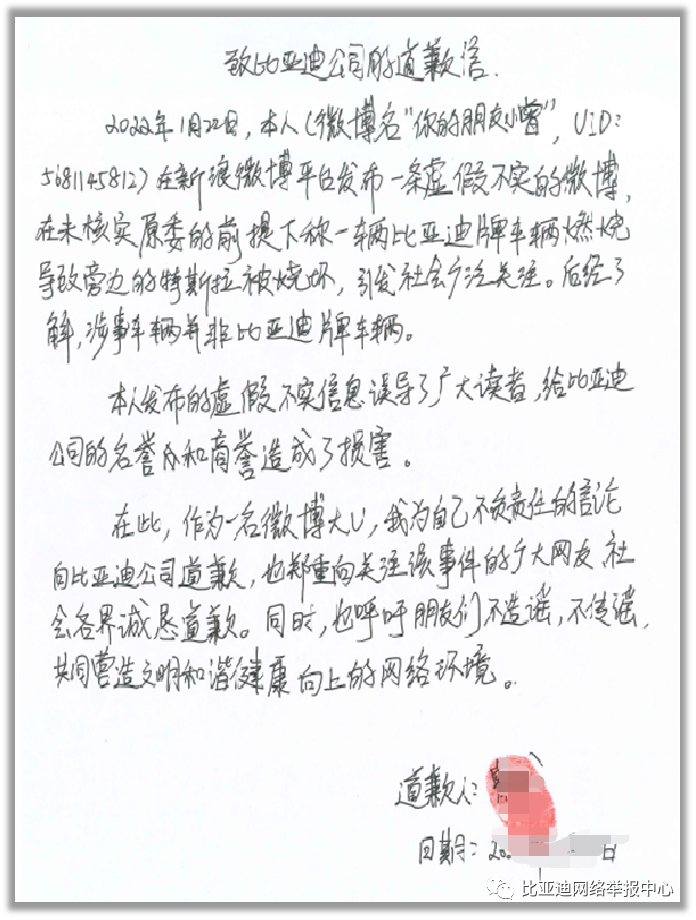 致比亚迪公司的道歉信.
2022年1月22日,本人(微博名"你的朋友小曾",UID:
5681145812)在新浪微博平台发布一条虚假不实的微博,
在未核实原委的前提下称一辆比亚迪牌车辆燃烧
导致旁边的特斯拉被烧坏,引发社会广泛关注。后经了
解,涉事车辆并非比亚迪牌车辆。
本人发布的虚假不实信息误导了广大读者,给比亚迪
公司的名誉 和商誉造成了损害。
在此,作为一名微博大V,我为自己不负责任的言论
向比亚迪公司道歉,也郑重向关注该事件的广大网友、社
会各界诚恳道歉。同时,也呼吁朋友们不造谣,不传谣,
共同营造文明和谐健康向上的网络环境。
道歉人:
日期:20 日
比亚迪网络举报中心